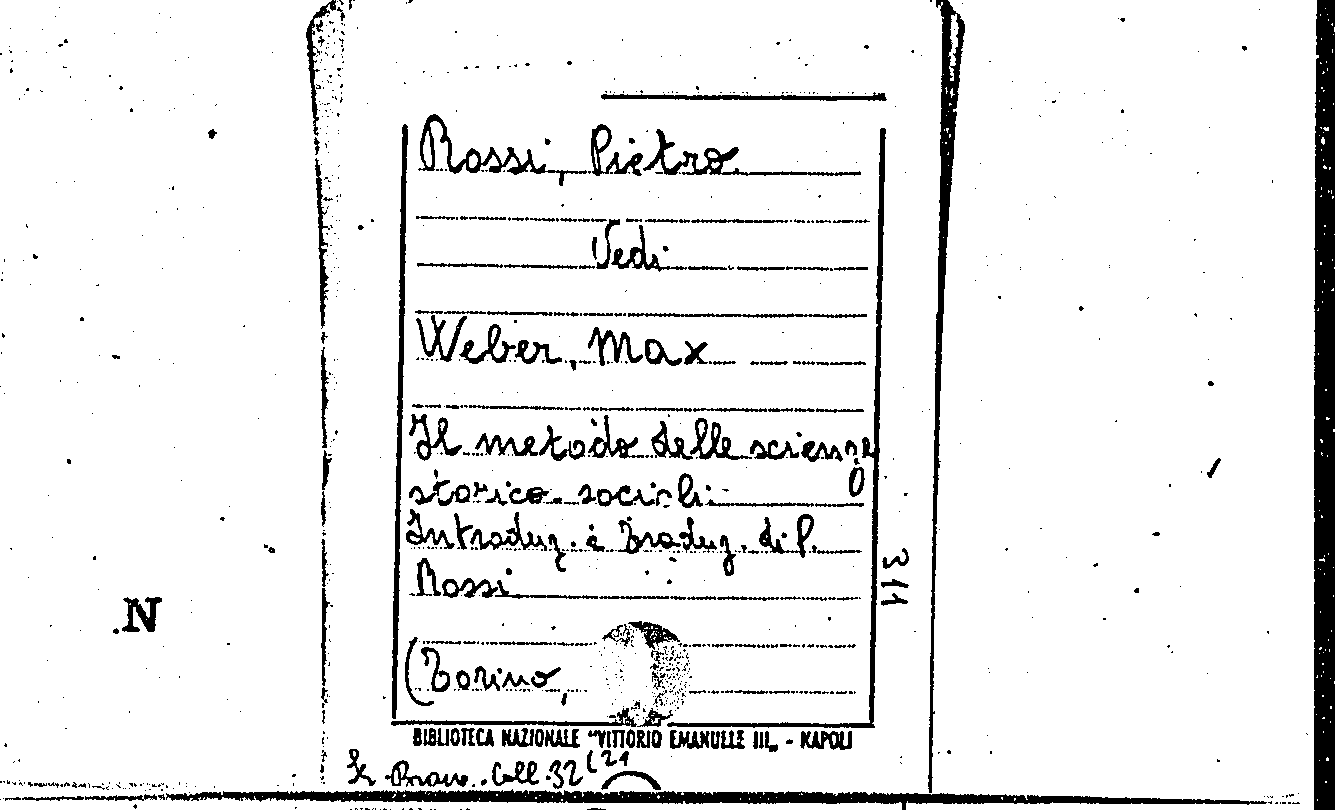 Rossi, Pietro
Vedi
Weber, Max
Il metodo delle scienze
storico-sociali:
Introduz. e Traduz. di P.
Rossi
311
N
(Torino,
BIBLIOTECA NAZIONALE "VITTORIO EMANUELE III„ - NAPOLI
Coll. 32 (21